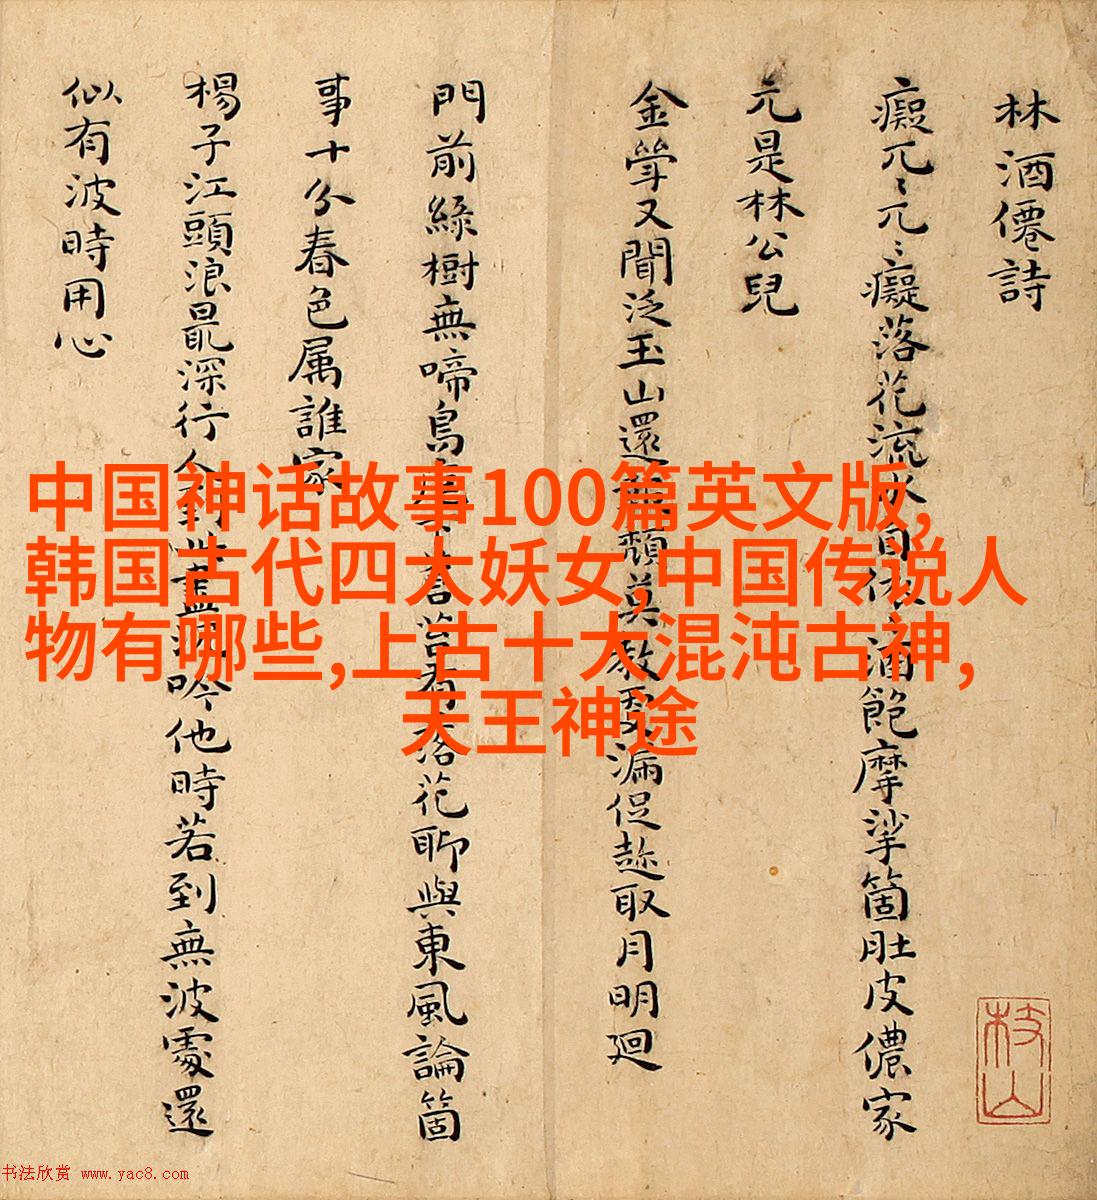 林酒僊詩
癡兀〻兀〻癡落花流水自依酒飽摩挲箇肚皮儂家
元是林公兒
金斝又聞泛玉山還頹莫教更漏促趂取月明廻
門前綠樹無啼鳥下蒼苔有落花聊與東風論箇
事十分春色属誰家
楊子江頭浪最深行人到此盡吟他時若到無波處還
似有波時用心
枝山
中国神话故事100篇英文版,
韩国古代四大妖女,中国传说人
物有哪些,上古十大混沌古神,
天王神途
书法欣赏 www.yac8.com